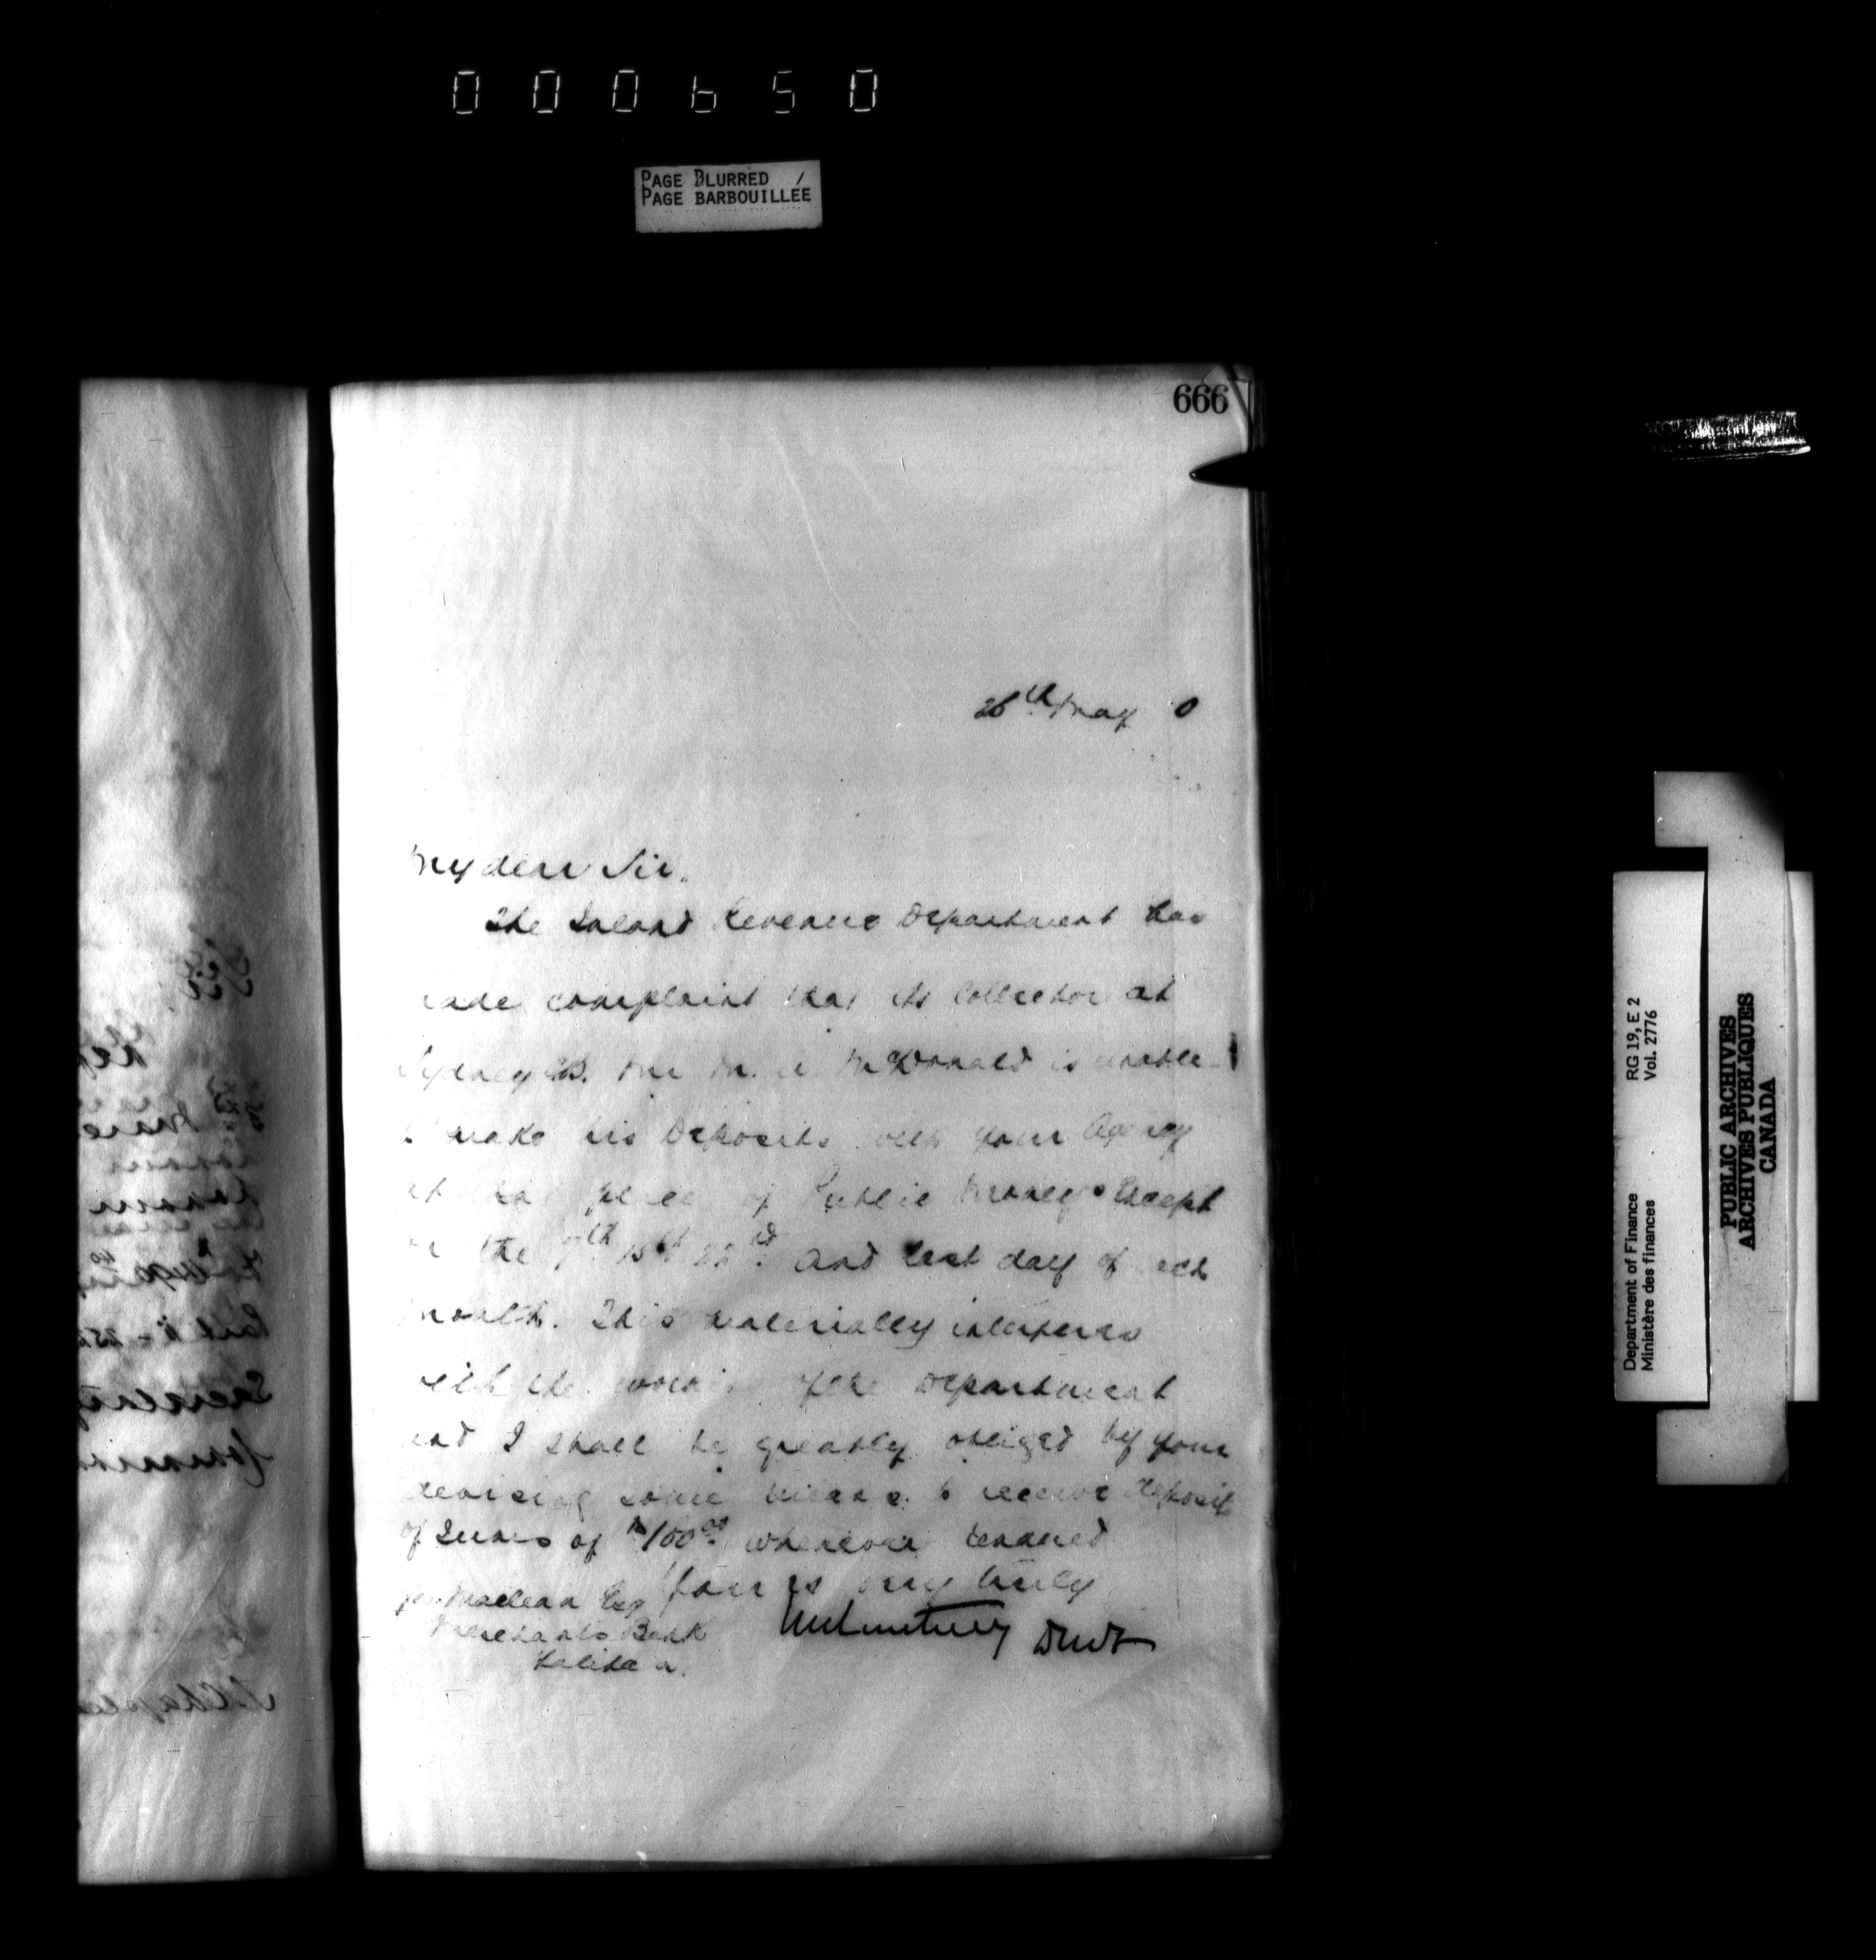 000650
PAGE BLURRED /
PAGE BARBOUILLEE
666
26th May 0
My dear Sir.
The Inland Revenue Department has
made complaint that its Collector at
Sydney CB. Mr M. A. McDonald is unable
to make his Deposits with your Agency
at that place of Public Moneys Except
on the 7th 15th 22nd. and last day of each
month. This materially interferes
with the working of the Department
and I shall be greatly obliged by your
devising some means to receive deposits
of Sums of $100.00 whenever tendered
Yours very truly
Maclean Esq
Merchants Bank
Halifax
JMCourtney DMF
Department of Finance RG 19, E 2
Ministère des finances Vol. 2776
PUBLIC ARCHIVES
ARCHIVES PUBLIQUES
CANADA